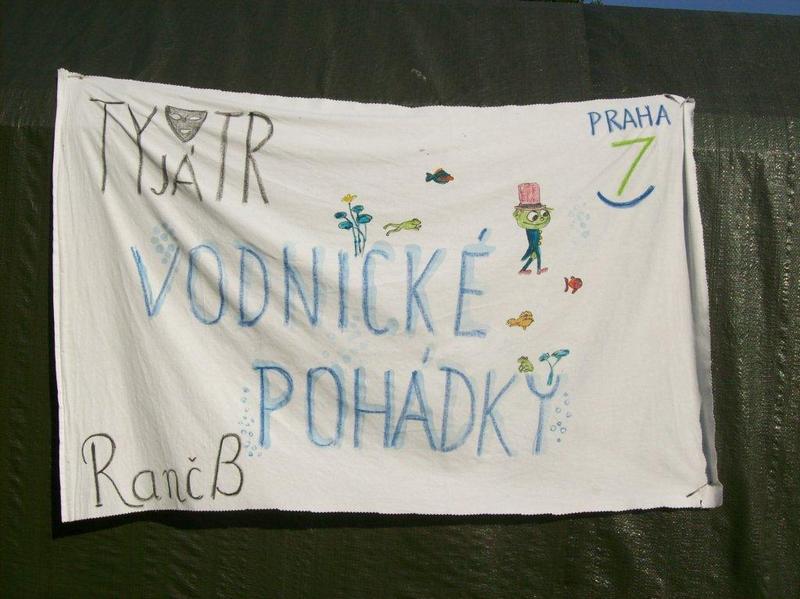 TYJÁTR
PRAHA
7
VODNICKÉ
POHÁDKY
RančB